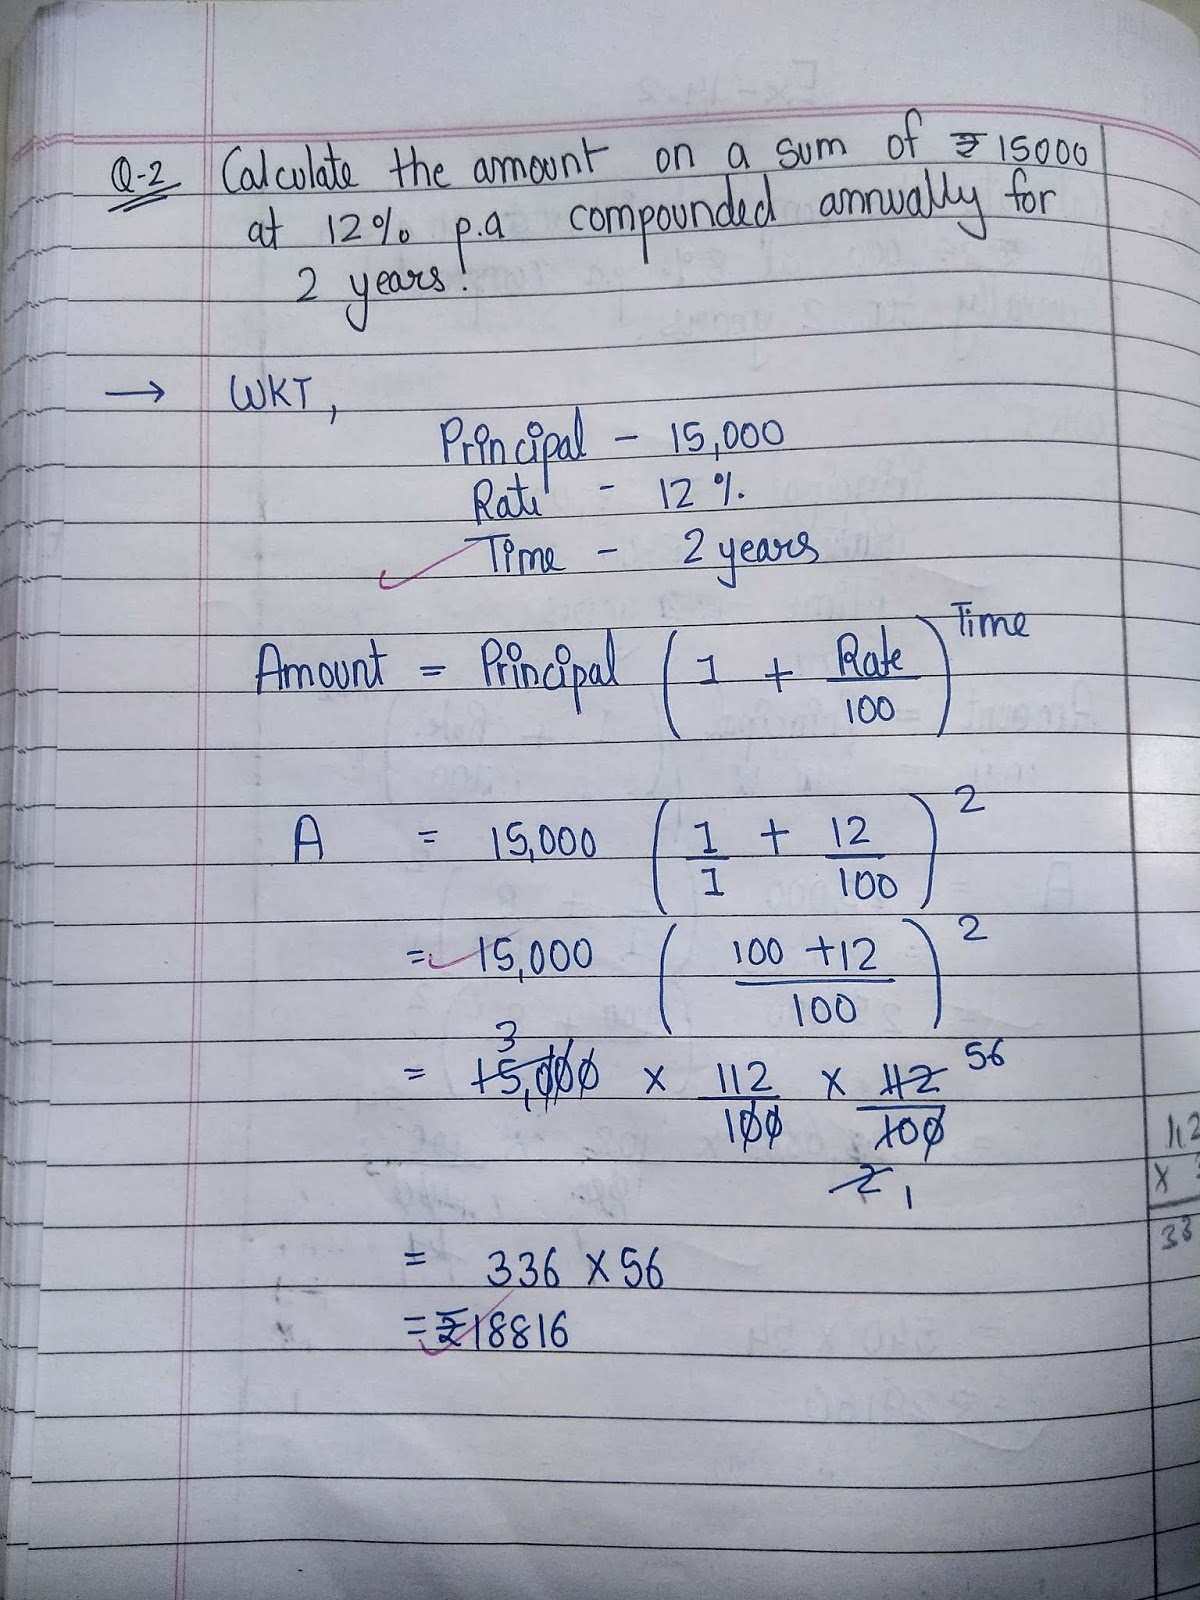 Q-2 Calculate the amount on a sum of ₹ 15000
at 12% p.a compounded annually for
2 years.
→ WKT,
Principal - 15,000
Rate - 12 %.
Time - 2 years
Amount = Principal ( 1 + Rate/100 )^Time
A = 15,000 ( 1/1 + 12/100 )^2
= 15,000 ( 100 + 12 / 100 )^2
3
= 15,000 × 112/100 × 112/100 56
2 1
= 336 × 56
= ₹ 18816
112
×
33